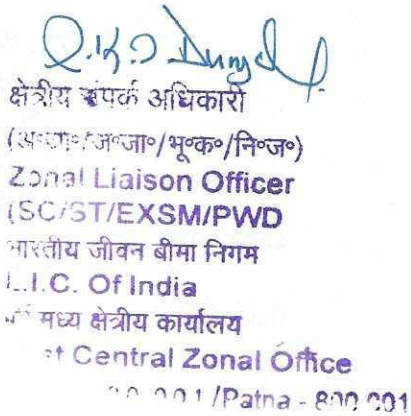 क्षेत्रीय संपर्क अधिकारी
(अ॰जा॰/ज॰जा॰/भू॰क॰/नि॰ज॰)
Zonal Liaison Officer
(SC/ST/EXSM/PWD
भारतीय जीवन बीमा निगम
L.I.C. Of India
मध्य क्षेत्रीय कार्यालय
Central Zonal Office
/Patna - 800 001